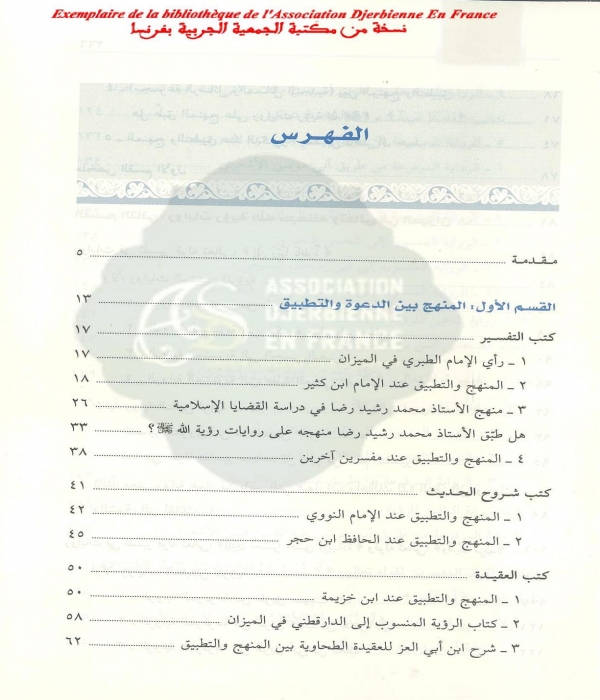 Exemplaire de la bibliothèque de l'Association Djerbienne En France
نسخة من مكتبة الجمعية الجربية بفرنسا
الفهرس
مقدمة ... ٥
القسم الأول: المنهج بين الدعوة والتطبيق ... ١٣
كتب التفسير ... ١٧
١ ـ رأي الإمام الطبري في الميزان ... ١٧
٢ ـ المنهج والتطبيق عند الإمام ابن كثير ... ١٨
٣ ـ منهج الأستاذ محمد رشيد رضا في دراسة القضايا الإسلامية ... ٢٦
هل طبّق الأستاذ محمد رشيد رضا منهجه على روايات رؤية الله ﷻ؟ ... ٣٣
٤ ـ المنهج والتطبيق عند مفسرين آخرين ... ٣٨
كتب شروح الحديث ... ٤١
١ ـ المنهج والتطبيق عند الإمام النووي ... ٤٢
٢ ـ المنهج والتطبيق عند الحافظ ابن حجر ... ٤٥
كتب العقيدة ... ٥٠
١ ـ المنهج والتطبيق عند ابن خزيمة ... ٥٠
٢ ـ كتاب الرؤية المنسوب إلى الدارقطني في الميزان ... ٥٨
٣ ـ شرح ابن أبي العز للعقيدة الطحاوية بين المنهج والتطبيق ... ٦٢
ASSOCIATION
DJERBIENNE
EN FRANCE